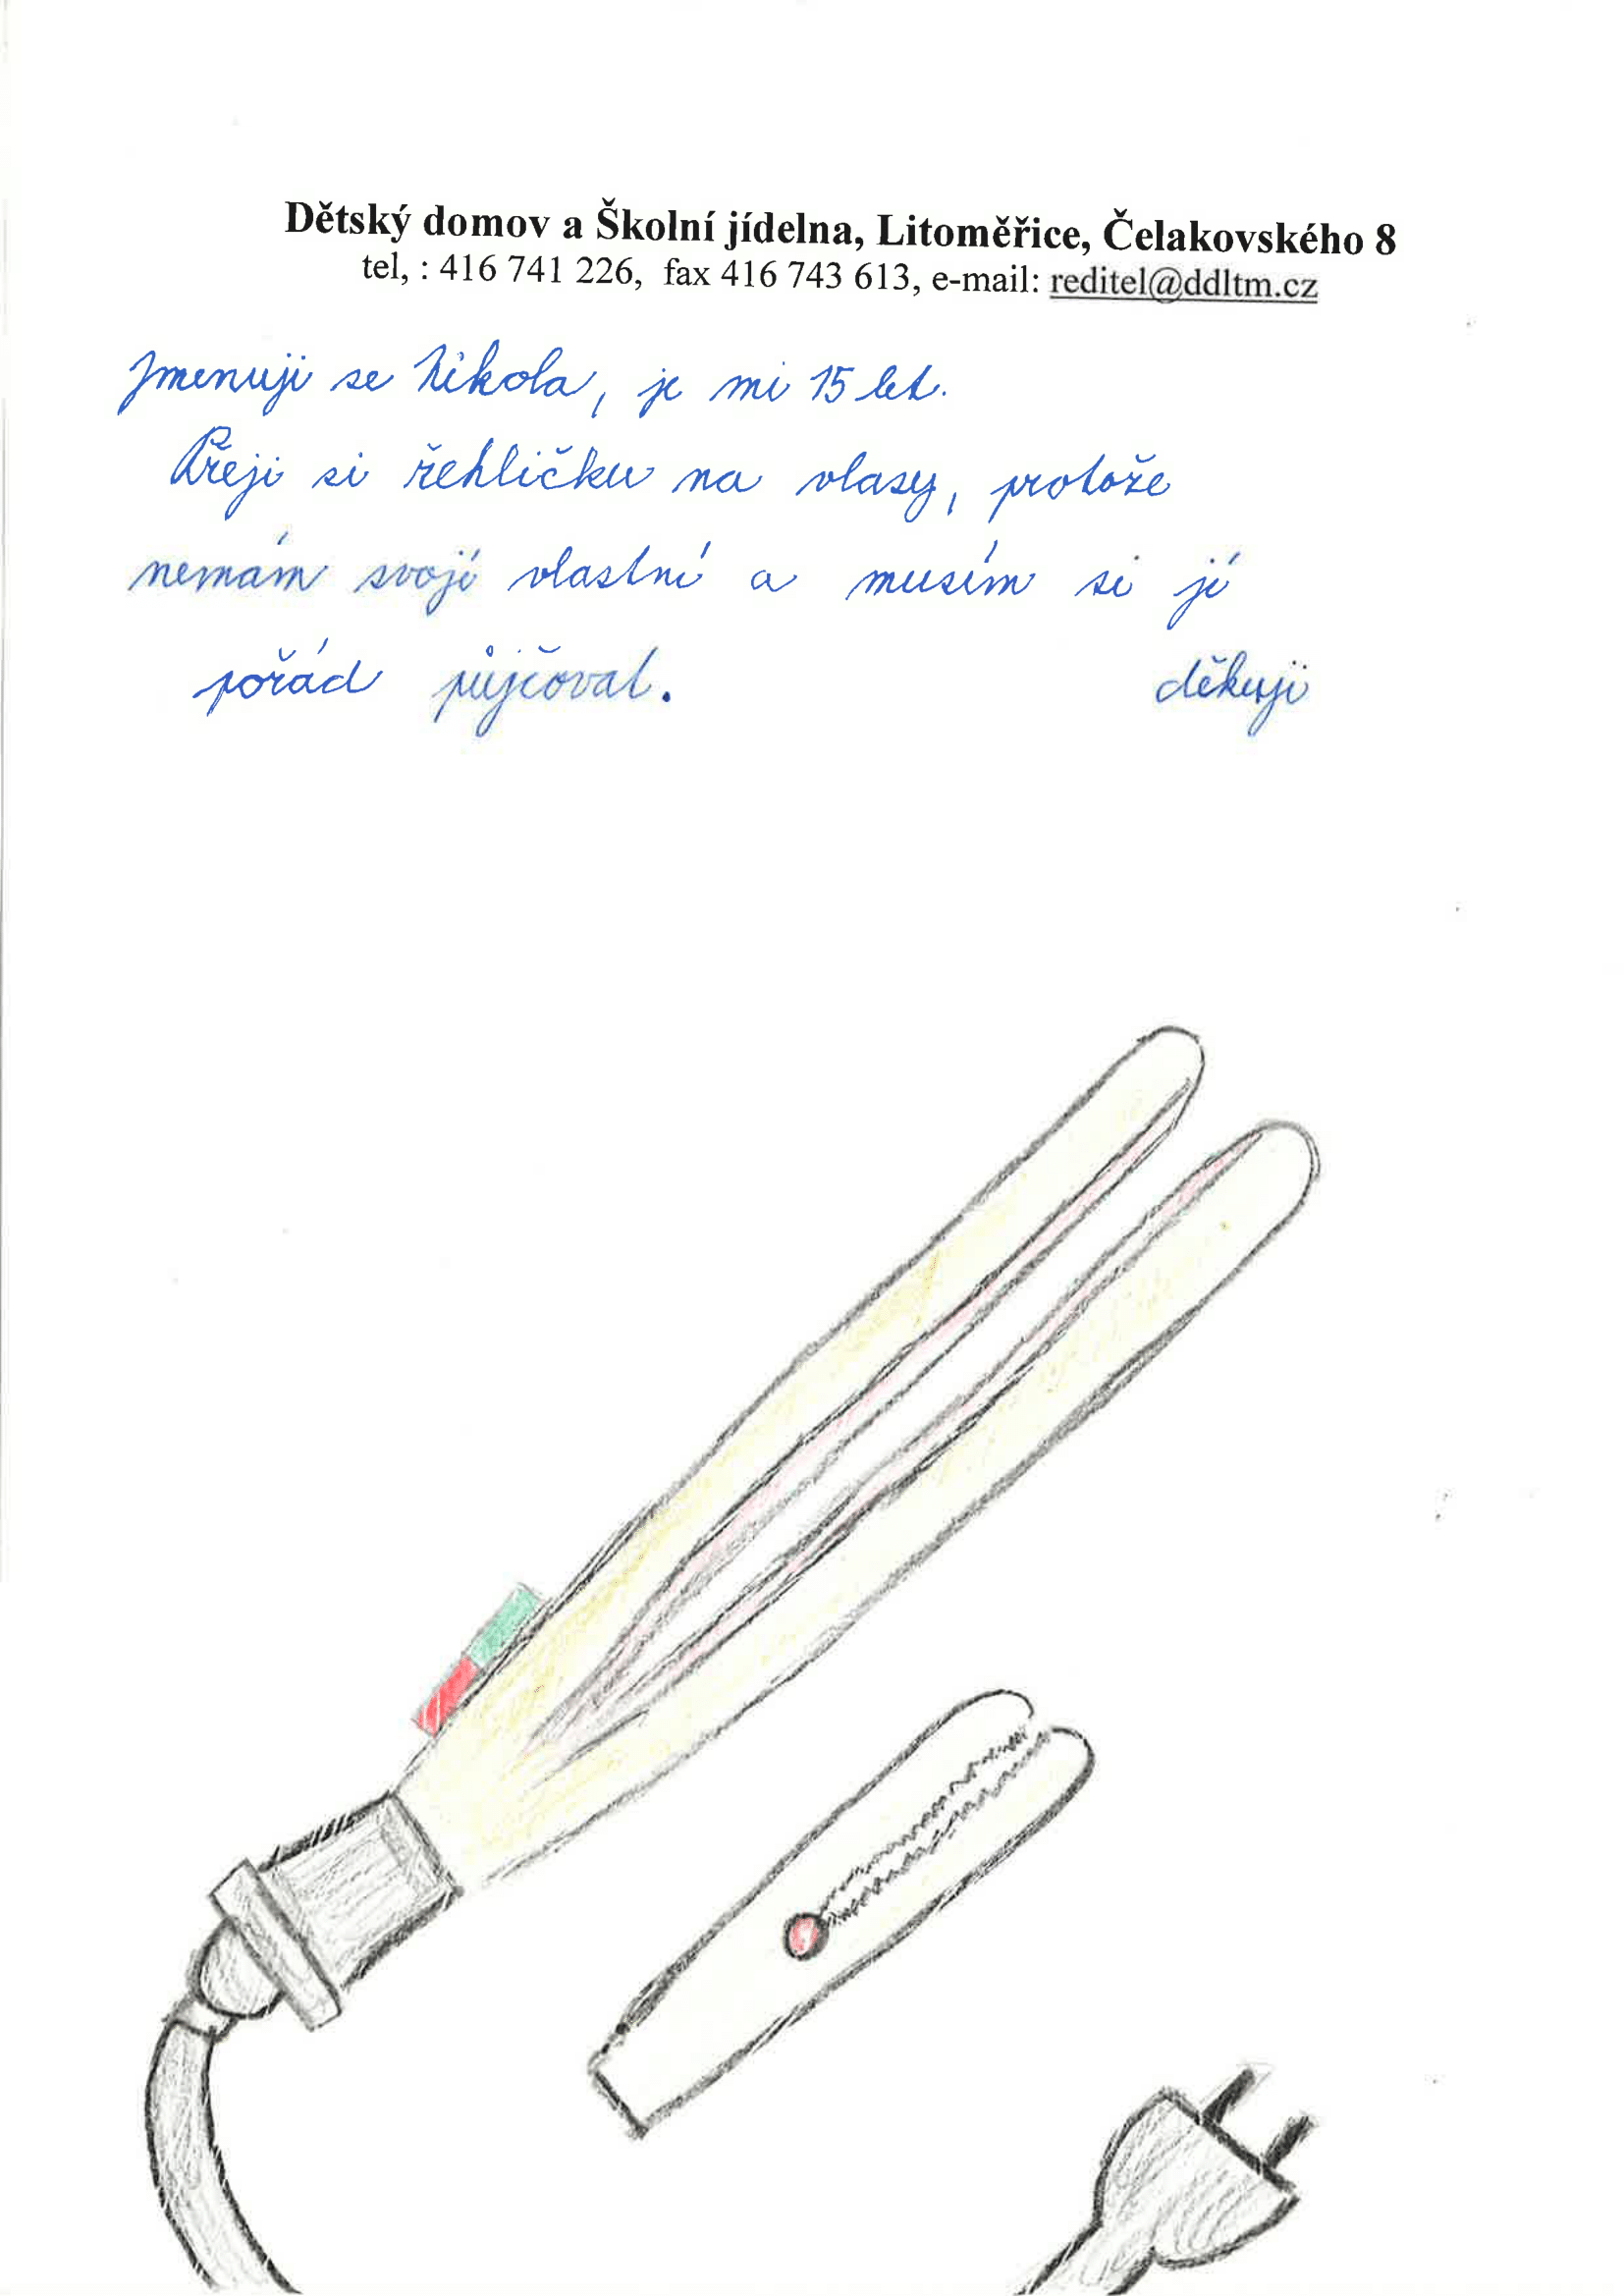 Dětský domov a Školní jídelna, Litoměřice, Čelakovského 8
tel, : 416 741 226, fax 416 743 613, e-mail: reditel@ddltm.cz
Jmenuji se Nikola, je mi 15 let.
Přeji si řehličku na vlasy, protože
nemám svojí vlastní a musím si jí
pořád půjčovat. děkuji